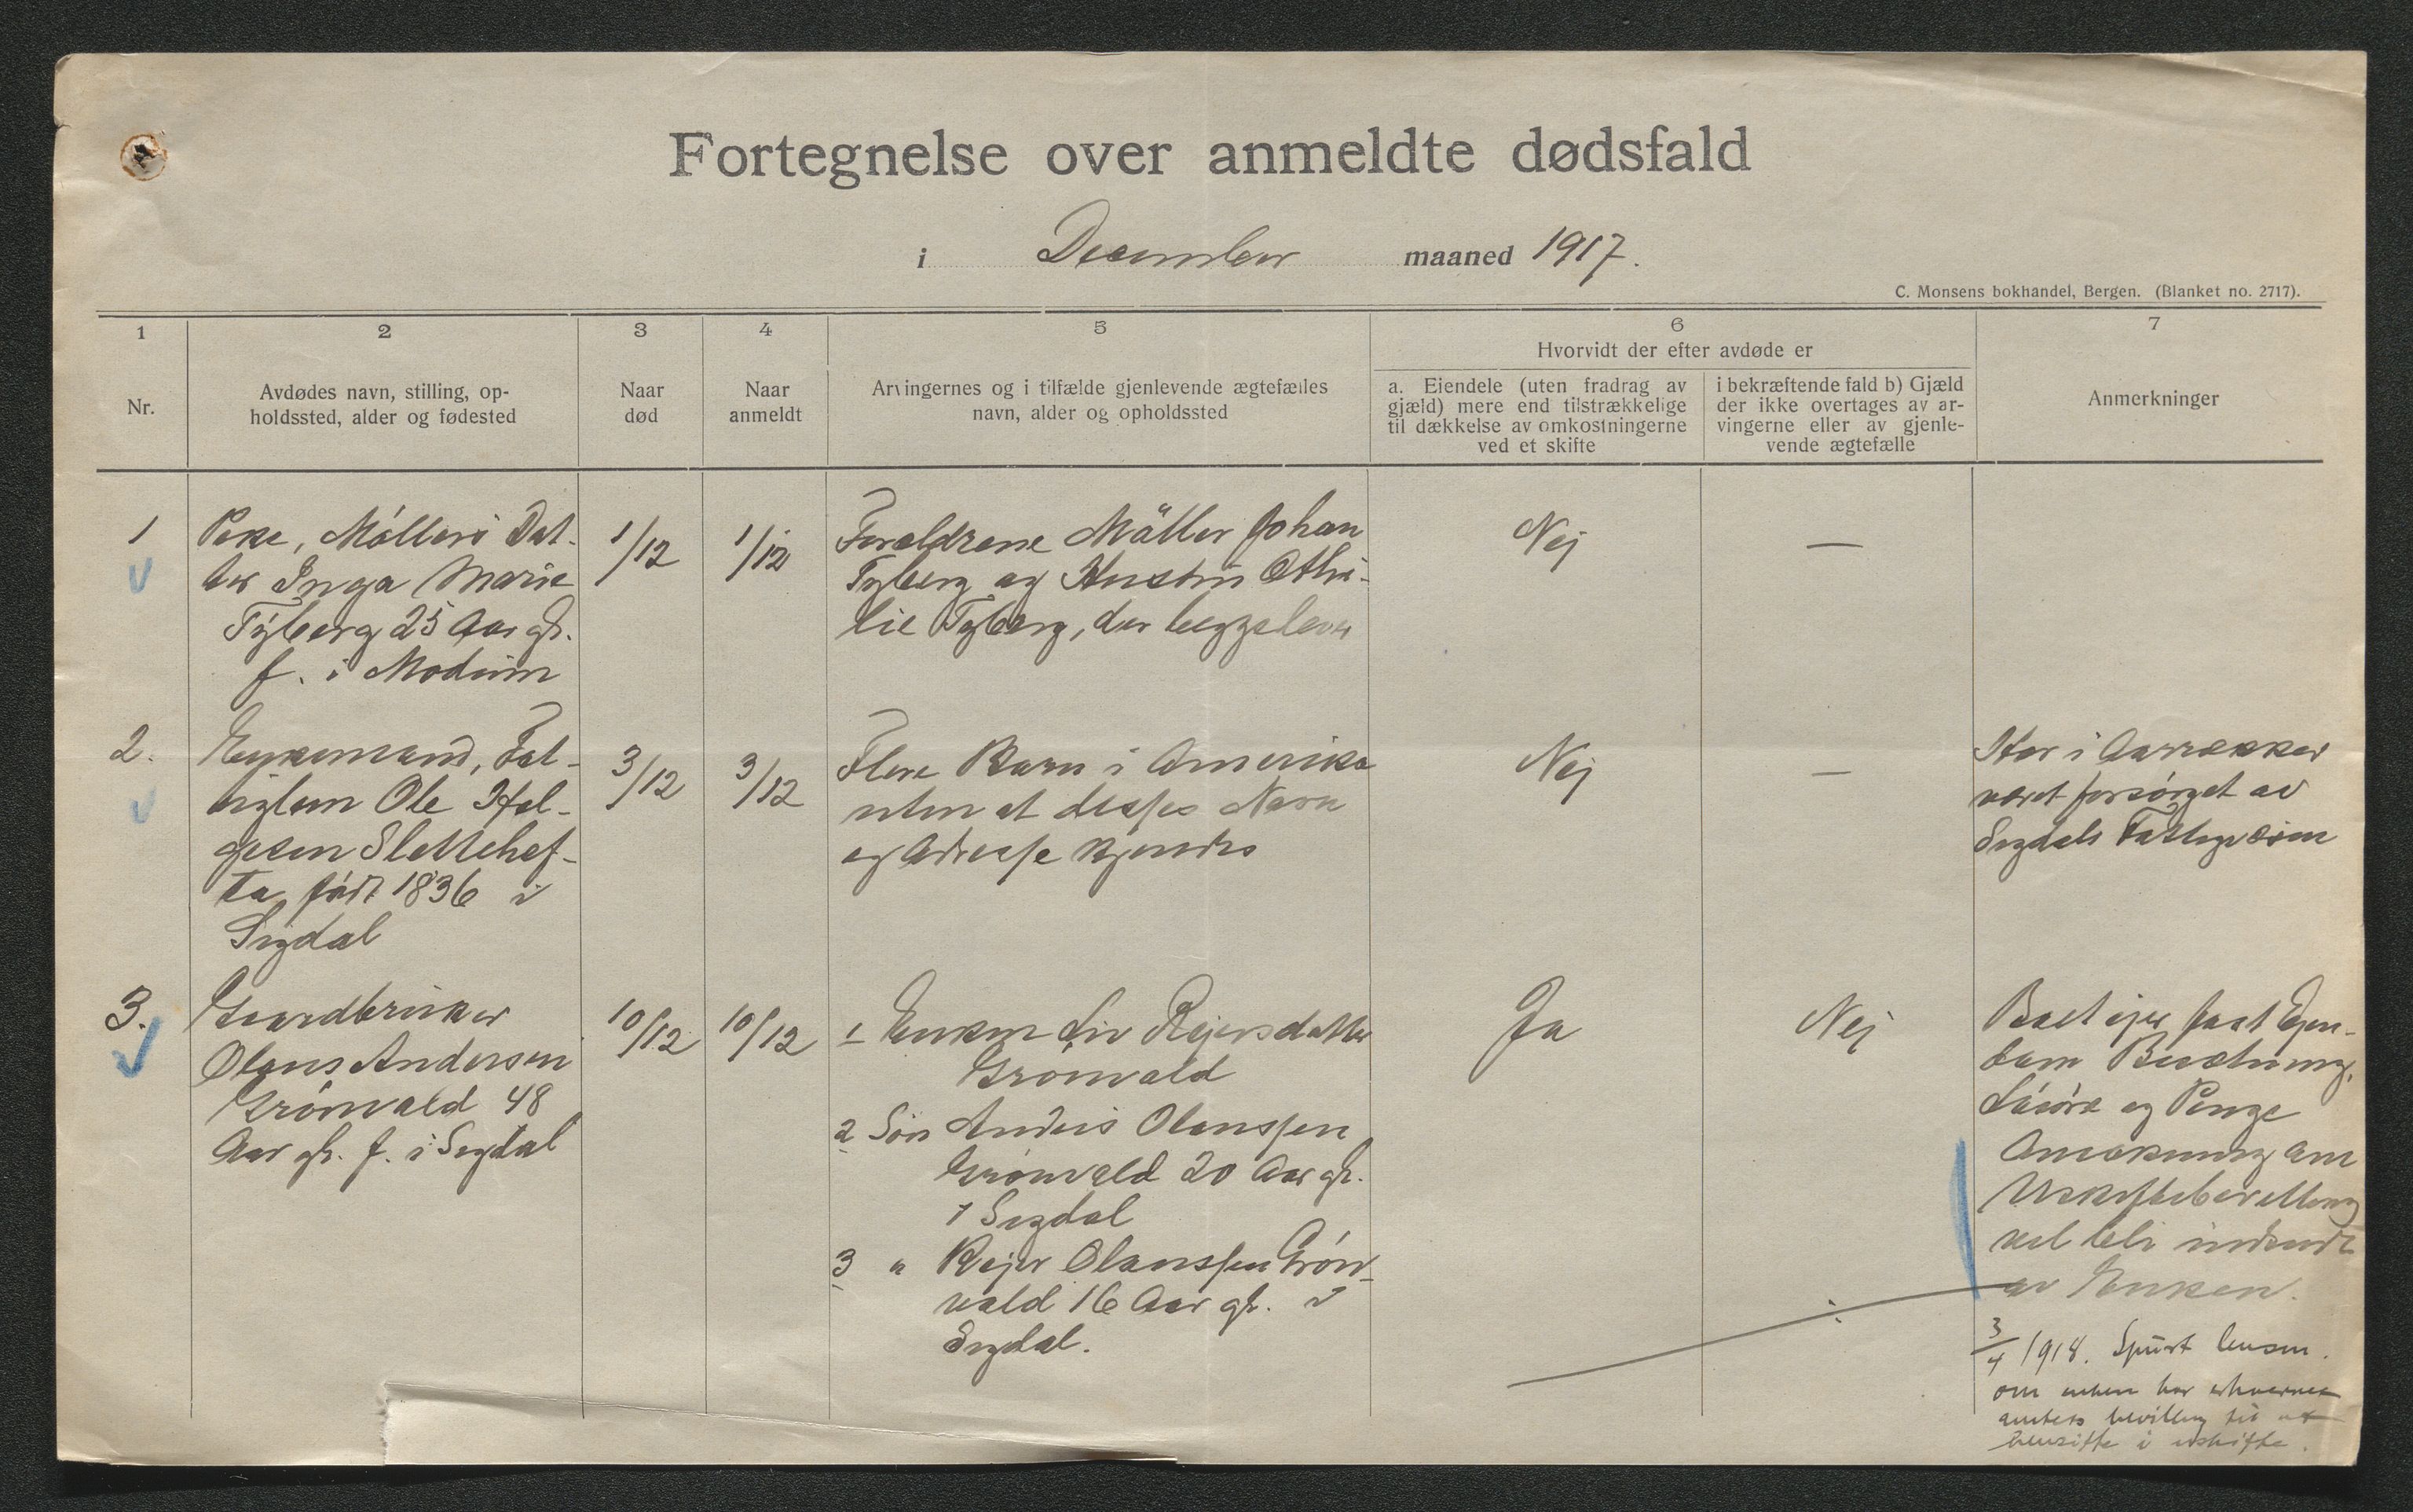 Fortegnelse over anmeldte dødsfald
i December maaned 1917.
C. Monsens bokhandel, Bergen. (Blanket no. 2717).
1
Nr.
2
Avdødes navn, stilling, op-
holdssted, alder og fødested
3
Naar
død
4
Naar
anmeldt
5
Arvingernes og i tilfælde gjenlevende ægtefælles
navn, alder og opholdssted
6
Hvorvidt der efter avdøde er
a. Eiendele (uten fradrag av
gjæld) mere end tilstrækkelige
til dækkelse av omkostningerne
ved et skifte
i bekræftende fald b) Gjæld
der ikke overtages av ar-
vingerne eller av gjenle-
vende ægtefælle
7
Anmerkninger
1
Pike, Møllers Dat-
ter Inga Marie
Tyberg 25 Aar gl.
f. i Modum
1/12
1/12
Forældrene Møller Johan
Tyberg og Hustru Othi-
lie Tyberg, der begge lever
Nej
—
2.
Enkemand, Fat-
liglem Ole Hel-
gesen Slettehef-
ta født 1836 i
Sigdal
3/12
3/12
Flere Barn i Amerika
uten at disses Navn
og Adresse kjendes
Nej
—
Har i Aarrekker
været forsørget av
Sigdals Fattigvæsen
3.
Gaardbruker
Olaus Andersen
Grønvald 48
Aar gl. f. i Sigdal
10/12
10/12
1 Enken Liv Reiersdatter
Grønvald
2 Søn Anders Olaussen
Grønvald 20 Aar gl.
i Sigdal
3 " Reier Olaussen Grøn-
vald 16 Aar gl. i
Sigdal.
Ja
Nej
Boet ejer fast Ejen-
dom Besetning,
Løsøre og Penge
Ansøkning om
Uskiftebevilling
vil bli indsendt
av Enken.
3/4 1918. Spurt lensm.
om enken har erhvervet
amtets bevilling til at
hensitte i uskifte.